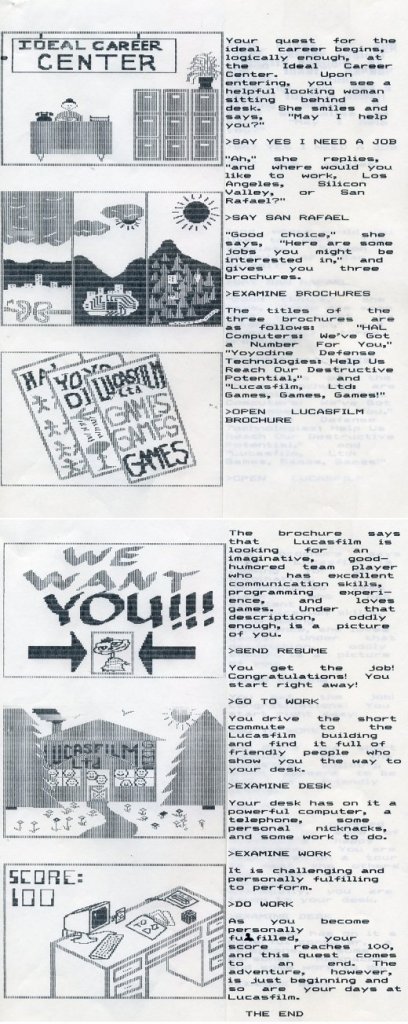 IDEAL CAREER
CENTER
Your quest for the
ideal career begins,
logically enough, at
the Ideal Career
Center. Upon
entering, you see a
helpful looking woman
sitting behind a
desk. She smiles and
says, "May I help
you?"
>SAY YES I NEED A JOB
"Ah," she replies,
"and where would you
like to work, Los
Angeles, Silicon
Valley, or San
Rafael?"
>SAY SAN RAFAEL
"Good choice," she
says, "Here are some
jobs you might be
interested in," and
gives you three
brochures.
>EXAMINE BROCHURES
The titles of the
three brochures are
as follows: "HAL
Computers: We've Got
a Number For You,"
"Yoyodine Defense
Technologies: Help Us
Reach Our Destructive
Potential," and
"Lucasfilm, Ltd:
Games, Games, Games!"
>OPEN LUCASFILM
BROCHURE
HA
YOYO
DI
LUCASFILM
Ltd
GAMES
GAMES
GAMES
WE
WANT
YOU!!!
The brochure says
that Lucasfilm is
looking for an
imaginative, good-
humored team player
who has excellent
communication skills,
programming experi-
ence, and loves
games. Under that
description, oddly
enough, is a picture
of you.
>SEND RESUME
You get the job!
Congratulations! You
start right away!
>GO TO WORK
LUCASFILM
Ltd
You drive the short
commute to the
Lucasfilm building
and find it full of
friendly people who
show you the way to
your desk.
>EXAMINE DESK
Your desk has on it a
powerful computer, a
telephone, some
personal nicknacks,
and some work to do.
>EXAMINE WORK
It is challenging and
personally fulfilling
to perform.
>DO WORK
SCORE:
100
As you become
personally
fulfilled, your
score reaches 100,
and this quest comes
to an end. The
adventure, however,
is just beginning and
so are your days at
Lucasfilm.
THE END